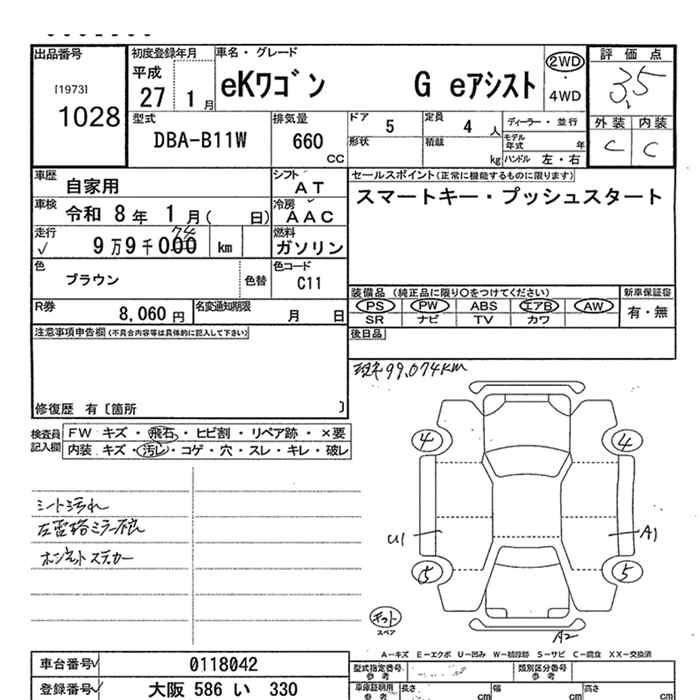 出品番号
[1973]
1028
初度登録年月
平成
27 1月
車名・グレード
eKワゴン G eアシスト
2WD
・
4WD
評価点
3.5
外装 内装
C C
型式
DBA-B11W
排気量
660
CC
ドア
5
定員
4 人
形状
積載
kg
ディーラー・並行
モデル年式 年
ハンドル 左・右
車歴
自家用
シフト
AT
車検
令和 8年 1月( 日)
冷房
AAC
走行
√ 9万9千000 km
74
燃料
ガソリン
色
ブラウン
色替
色コード
C11
R券
8,060 円
名変通知期限
月 日
セールスポイント(正常に機能するものに限ります)
スマートキー・プッシュスタート
装備品 (純正品に限り○をつけてください)
PS PW ABS エアB AW
SR ナビ TV カワ
新車保証書
有・無
後日品
注意事項申告欄(不具合内容等は具体的に記入して下さい)
修復歴 有〔箇所 〕
検査員記入欄
FW キズ・飛石・ヒビ割・リペア跡・×要
内装 キズ・汚レ・コゲ・穴・スレ・キレ・破レ
現走99,074KM
シート汚れ
ボンネットステッカー
4 4
U1 A1
5 5
スペア
A2
A−キズ E−エクボ U−凹み W−補修跡 S−サビ C−腐食 XX−交換済
車台番号√ 0118042
登録番号√ 大阪 586 い 330
型式指定番号
参考
類別区分番号
参考
車庫証明用
参考
長さ cm
幅 cm
高さ cm